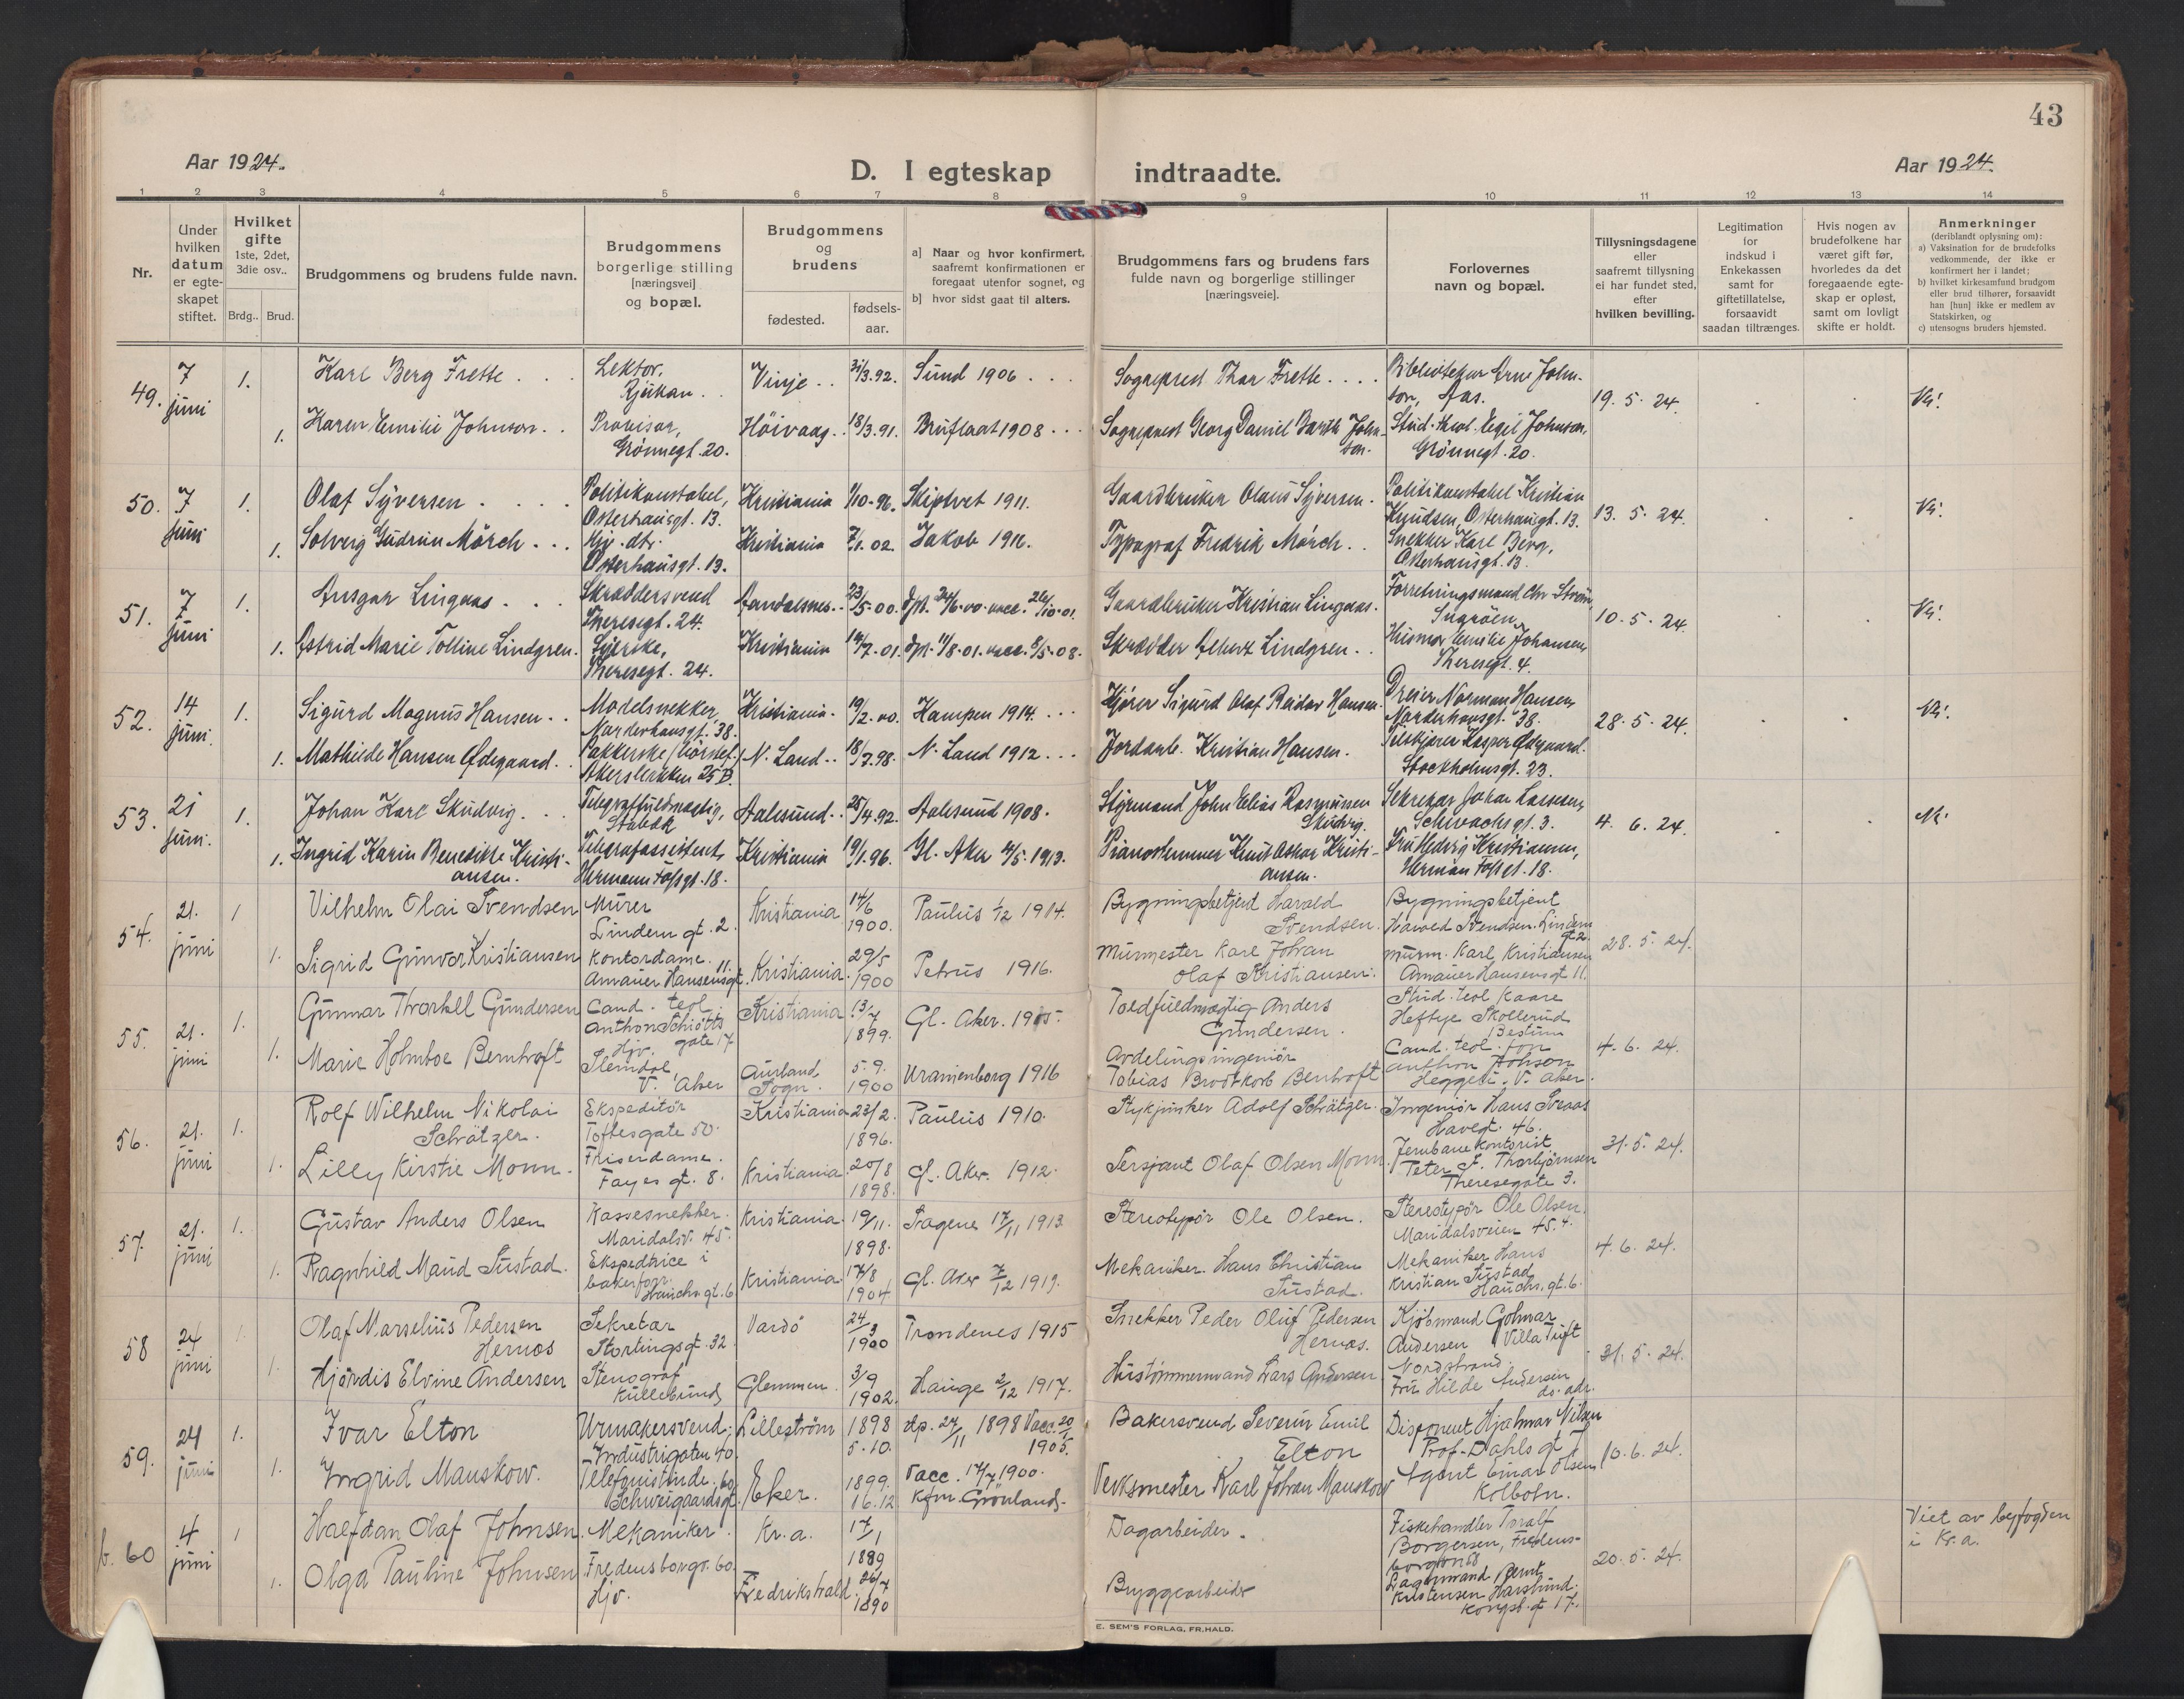 43
Aar 1924.
D. I egteskap indtraadte.
Aar 1924.
1 2 3 4 5 6 7 8 9 10 11 12 13 14
Nr.
Under hvilken datum er egteskapet stiftet.
Hvilket gifte 1ste, 2det, 3die osv..
Brdg.. Brud.
Brudgommens og brudens fulde navn.
Brudgommens borgerlige stilling [næringsvei] og bopæl.
Brudgommens og brudens
fødested.
fødsels-aar.
a] Naar og hvor konfirmert, saafremt konfirmationen er foregaat utenfor sognet, og
b] hvor sidst gaat til alters.
Brudgommens fars og brudens fars fulde navn og borgerlige stillinger [næringsveie].
Forlovernes navn og bopæl.
Tillysningsdagene eller saafremt tillysning ei har fundet sted, efter hvilken bevilling.
Legitimation for indskud i Enkekassen samt for giftetillatelse, forsaavidt saadan tiltrænges.
Hvis nogen av brudefolkene har været gift før, hvorledes da det foregaaende egteskap er opløst, samt om lovligt skifte er holdt.
Anmerkninger (deriblandt oplysning om):
a) Vaksination for de brudefolks vedkommende, der ikke er konfirmert her i landet;
b) hvilket kirkesamfund brudgom eller brud tilhører, forsaavidt han [hun] ikke er medlem av Statskirken, og
c) utensogns bruders hjemsted.
49. 7 juni 1. Karl Berg Frette . . . Lektor, Rjukan . . Vinje . . 31/3.92. Sund 1906 . . . Sogneprest Thor Frette . . . . Bibliotekar Arne Johnson, Aas. 19. 5. 24.
1. Karen Emilie Johnson . . Provisor, Grönnegt. 20. Höivaag . . 18/3.91. Bruflaat 1908 . . . Sogneprest Georg Daniel Barth Johnson. Stud. theol. Egil Johnson, Grönnegt. 20.
50. 7 juni 1. Olaf Syversen . . . . Politikonstabel, Osterhausgt. 13. Kristiania 1/10-96. Skiptvet 1911. Gaardbruker Olaus Syversen. Politikonstabel Kristian Knudsen, Osterhausgt. 13. 13. 5. 24.
1. Solveig Gudrun Mörch . . . Hjv. dtr. Osterhausgt. 13. Kristiania 7/1. 02. Jakob 1916. Typograf Fredrik Mörch . . Snekker Karl Berg, Osterhausgt. 13.
51. 7 juni 1. Ansgar Lingaas . . . Skræddersvend Theresegt. 24. Aandalsnes . . 23/5-00. dpt. 24/6-00 vacc. 26/10-01. Gaardbruker Kristian Lingaas. Forretningsmand Chr Ström, 10. 5. 24.
1. Astrid Marie Tolline Lindgren. Syerske, Theresegt. 24. Kristiania 14/7-01. dpt. 11/8-01. vacc. 8/5-08. Skrædder Albert Lindgren . . Emilie Johansen, Theresegt. 4.
52. 14 juni. 1. Sigurd Magnus Hansen . . Modelsnekker, Norderhovsgt. 38. Kristiania. 19/2.00. Kampen 1914. . . . Kjörer Sigurd Olaf Reidar Hansen. Dreier Norman Hansen, Norderhovsgt. 38. 28. 5. 24.
1. Mathilde Hansen Ødegaard . . Pakkerske Akersbakken 25 B. N. Land . . 18/7.98. N. Land 1912 . . . Jordarb. Kristian Hansen. Kasper Ødegaard. Stockholmsgt. 23.
53. 21 juni. 1. Johan Karl Skudvig . . . Telegraffuldmægtig, Stabekk Aalesund . . 25/4.92. Aalesund 1908. Styrmand John Elias Rasmussen Skudvig. Sekretær Johan Lassesen, Schwachsgt. 3. 4. 6. 24.
1. Ingrid Karin Benedikte Kristiansen. Telegrafassistent, Hermann Fossgt. 18. Kristiania 19/1.96. Gl. Aker 4/5. 1913. Pianostemmer Knut Oskar Kristiansen. Fru Hedvig Kristiansen, Herman Fossgt. 18.
54. 21. juni 1 Vilhelm Olai Svendsen Murer Lindern gt. 2. Kristiania 14/6 1900. Paulus 1/12 1914. Bygningsbetjent Harald Svendsen. Bygningsbetjent Harald Svendsen. Lindern gt 2. 28. 5. 24.
1. Sigrid Gunvor Kristiansen Kontordame. Amauer Hansensgt 11. Kristiania. 29/5 1900 Petrus 1916. Murmester Karl Johan Olaf Kristiansen. Murm. Karl Kristiansen Amauer Hansensgt 11.
55. 21. juni 1. Gunnar Thorkell Gundersen Cand. teol Anthon Schiøtts gate 17 Kristiania 13/7 1899. Gl. Aker. 1915. Toldfuldmægtig Anders Gundersen. Stud. teol Kaare Heftye Skollerud Bestum 4. 6. 24.
1. Marie Holmboe Bernhoft Hjv. Slemdal, V. Aker Aurland, Sogn. 5. 9. 1900 Uranienborg 1916 Avdelingsingeniör Tobias Brodtkorb Bernhoft Cand. teol. Jon Anthon Johnson Heggeli. V. Aker.
56. 21. juni 1. Rolf Wilhelm Nikolai Schrätzer. Ekspeditör Toftesgate 50. Kristiania 23/2. 1896. Paulus 1910. Stykjunker Adolf Schrätzer. Ingeniör Hans Sveaas Havegt. 46. 31. 5. 24.
1. Lilly Kirstie Monn. Friserdame. Fayes gt. 8. Kristiania 20/8 1898. Gl. Aker 1912. Sersjant Olaf Olsen Monn. Jernbanekontorist Peter F. Thorbjørnsen Theresegate 3.
57. 21. juni 1. Gustav Anders Olsen Kassesnekker. Maridalsv. 45. Kristiania 19/11. 1898. Sagene 17/11 1913 Stereotypör Ole Olsen. Stereotypör Ole Olsen. Maridalsveien 45.4. 4. 6. 24.
1. Ragnhild Maud Sustad. Ekspedtrice i bakerforr. Hauchs gt. 6 Kristiania 17/8 1904 Gl. Aker 7/12 1919. Mekaniker Hans Christian Sustad. Mekaniker Hans Kristian Sustad Hauchs. gt. 6.
58 24 juni 1. Olaf Marselius Pedersen Hernes Sekretær Stortingsgt. 32 Vardö 24/3 1900 Trondenes 1915 Snekker Peder Oluf Pedersen Hernes. Kjöbmand Golmar Andersen Villa Tuft Nordstrand. 31. 5. 24.
1. Hjördis Elvine Andersen Stenograf Kullebund Glemmen 3/9 1902. Hauge 2/12 1917. Hustömmermand Lars Andersen Fru Hilde Andersen ds. adr.
59. 24 juni 1. Ivar Elton Urmakersvend. Industrigaten 40. Lilleström 1898 5.10. dp. 27/11 1898 Vacc. 20/1 1905. Bakersvend Severin Emil Elton Disponent Hjalmar Nilsen Prof. Dahls gt 7 10. 6. 24.
1. Ingrid Mauskow. Telefonistinde. Schweigaardsgt. 60 Eker. 1899. 16.12 Vacc. 17/7 1900. Kfm. Grönlands- Verksmester Karl Johan Mauskow Agent Einar Olsen Kolbotn.
b. 60 4 juni 1 Halfdan Olaf Johnsen. Mekaniker. Fredensborgv. 60. Kr.a. 17/1 1889 Dagarbeider. Fiskehandler Toralf Borgersen, Fredensborgvn 68 20. 5. 24. Viet av byfogden i Kr.a.
1. Olga Pauline Johnsen Hjv. Fredrikshald. 26/7 1890 Bryggearbeider Lagermand Bernt Kristensen Harslund. Kongsb. gt 17.
E. SEM'S FORLAG, FR.HALD.